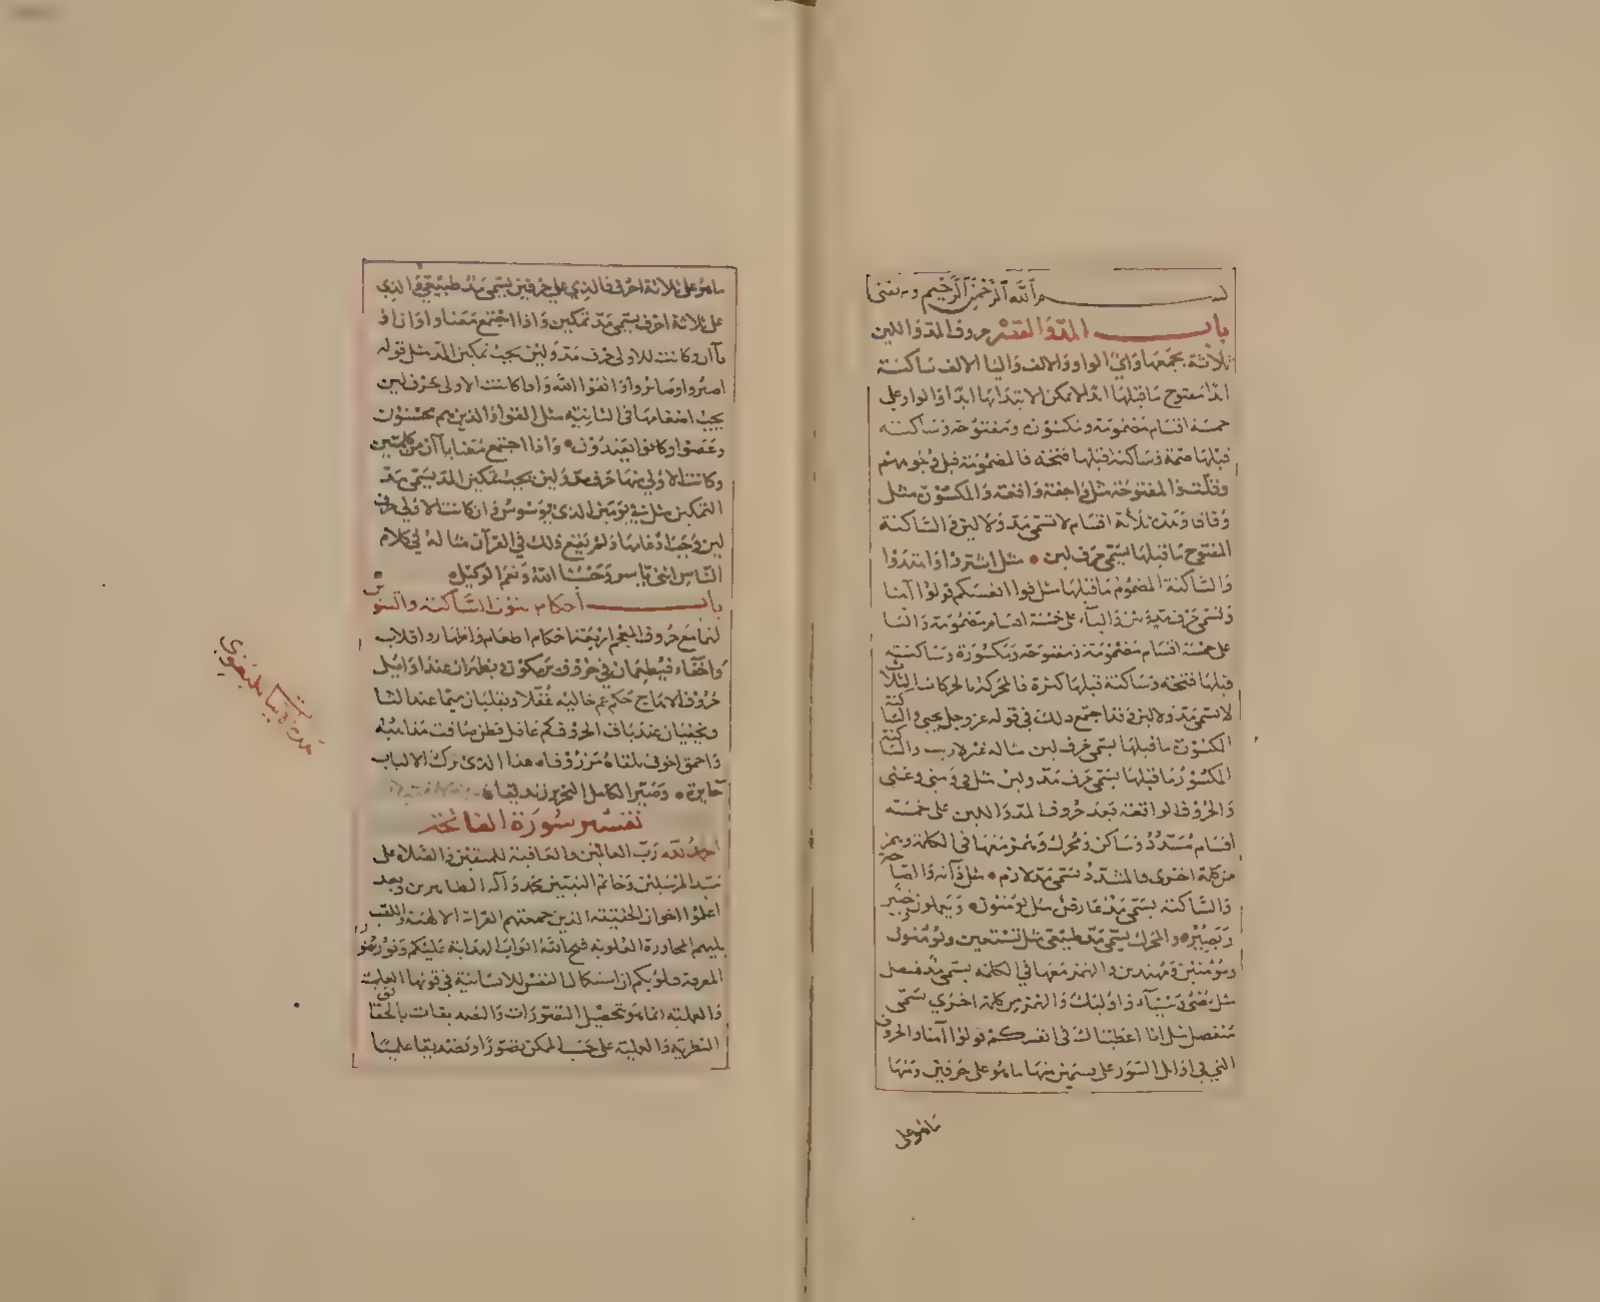 بسم الله الرحمن الرحيم وبه ثقتي
باب المد والقصر حروف المد واللين
ثلاثة يجمعها واي الواو والالف واليا الالف ساكنة
ابدا مفتوح ما قبلها ابدا لا يمكن الابتدا بها ابدا والواو على
خمسة اقسام مضمومة ومكسورة ومفتوحة وساكنة
قبلها ضمة وساكنة قبلها فتحة فالمضمومة قبل وجوههم
وقلت والمفتوحة مثل واجفة واقعة والمكسورة مثل
وفاقا وهذه ثلاثة اقسام لا تسمى مد ولا لين والساكنة
المفتوح ما قبلها يسمى حرف لين مثل اشتروا واعتدوا
والساكنة المضموم ما قبلها مثل قوا انفسكم قولوا آمنا
وتسمى حرف مد ولين واليآء على خمسة اقسام مضمومة واليا
على خمسة اقسام مضمومة ومفتوحة ومكسورة وساكنة
قبلها فتحة وساكنة قبلها كسرة فالمحركة بالحركات الثلاث
لا تسمى مد ولا لين وقد اجتمع ذلك في قوله عز وجل يحيى والساكنة
المكسورة ما قبلها يسمى حرف لين مثاله غير لا ريب والساكنة
المكسور ما قبلها يسمى حرف مد ولين مثل في ومنى وعنى
والحروف الواقعة بعد حروف المد واللين على خمسة
اقسام مشدد وساكن ومحرك وهمز معها في الكلمة وهمز
من كلمة اخرى والمشدد يسمى مد لازم مثل دآبة والصاخة
والساكنة يسمى مد عارض مثل يؤمنون ويعملون خبير
وبصير والمحرك يسمى مد طبيعي مثل نستعين ويؤمنون
ومؤمنين ومهتدين والهمز معها في الكلمة يسمى مد متصل
مثل يضئ وشآء واولئك والهمز من كلمة اخرى يسمى
منفصل مثل انا اعطيناك في انفسكم قولوا آمنا والحروف
التي في اوائل السور على قسمين منها ما هو على حرفين ومنها
ما هو على
ما هو على ثلاثة احرف فالذي على حرفين يسمى مد طبيعي والذي
على ثلاثة احرف يسمى مد تمكين واذا اجتمع معنا واوان او
يآان وكانت الاولى حرف مد ولين يجب تمكين المد مثل قوله
اصبروا وصابروا واتقوا الله واذا كانت الاولى حرف لين
يجب ادغامها في الثانية مثل اتقوا والذين هم محسنون
وعصوا وكانوا يعتدون واذا اجتمع معنا يآان من كلمتين
وكانت الاولى منها حرف مد ولين يجب تمكين المد يسمى مد
التمكين مثل في يومين الذي يوسوس وان كانت الاولى حرف
لين وجب ادغامها ولم يقع ذلك في القرآن مثاله في كلام
الناس اخشى ياسر وحسبنا الله ونعم الوكيل
باب احكام نون الساكنة والتنوين
لهما مع حروف المعجم اربعة احكام ادغام واظهار واقلاب
واخفاء فيدغمان في حروف يرملون ويظهران عند اوايل
ويخفيان عند باقي الحروف
حايرة وصير الكامل النحرير زنديقا
تفسير سورة الفاتحة
الحمد لله رب العالمين والعاقبة للمتقين والصلاة على
سيد المرسلين وخاتم النبيين محمد وآله الطاهرين وبعد
اعلموا اخوان الحقيقة الذين جمعتهم القرابة الالهية
المعرفة قلوبكم ان استكمال النفس الانسانية في قوتها العلمية
والعملية انما هو تحصيل التصورات والتصديقات بالحقائق
النظرية والعملية على حسب الممكن تصورا وتصديقا علميا